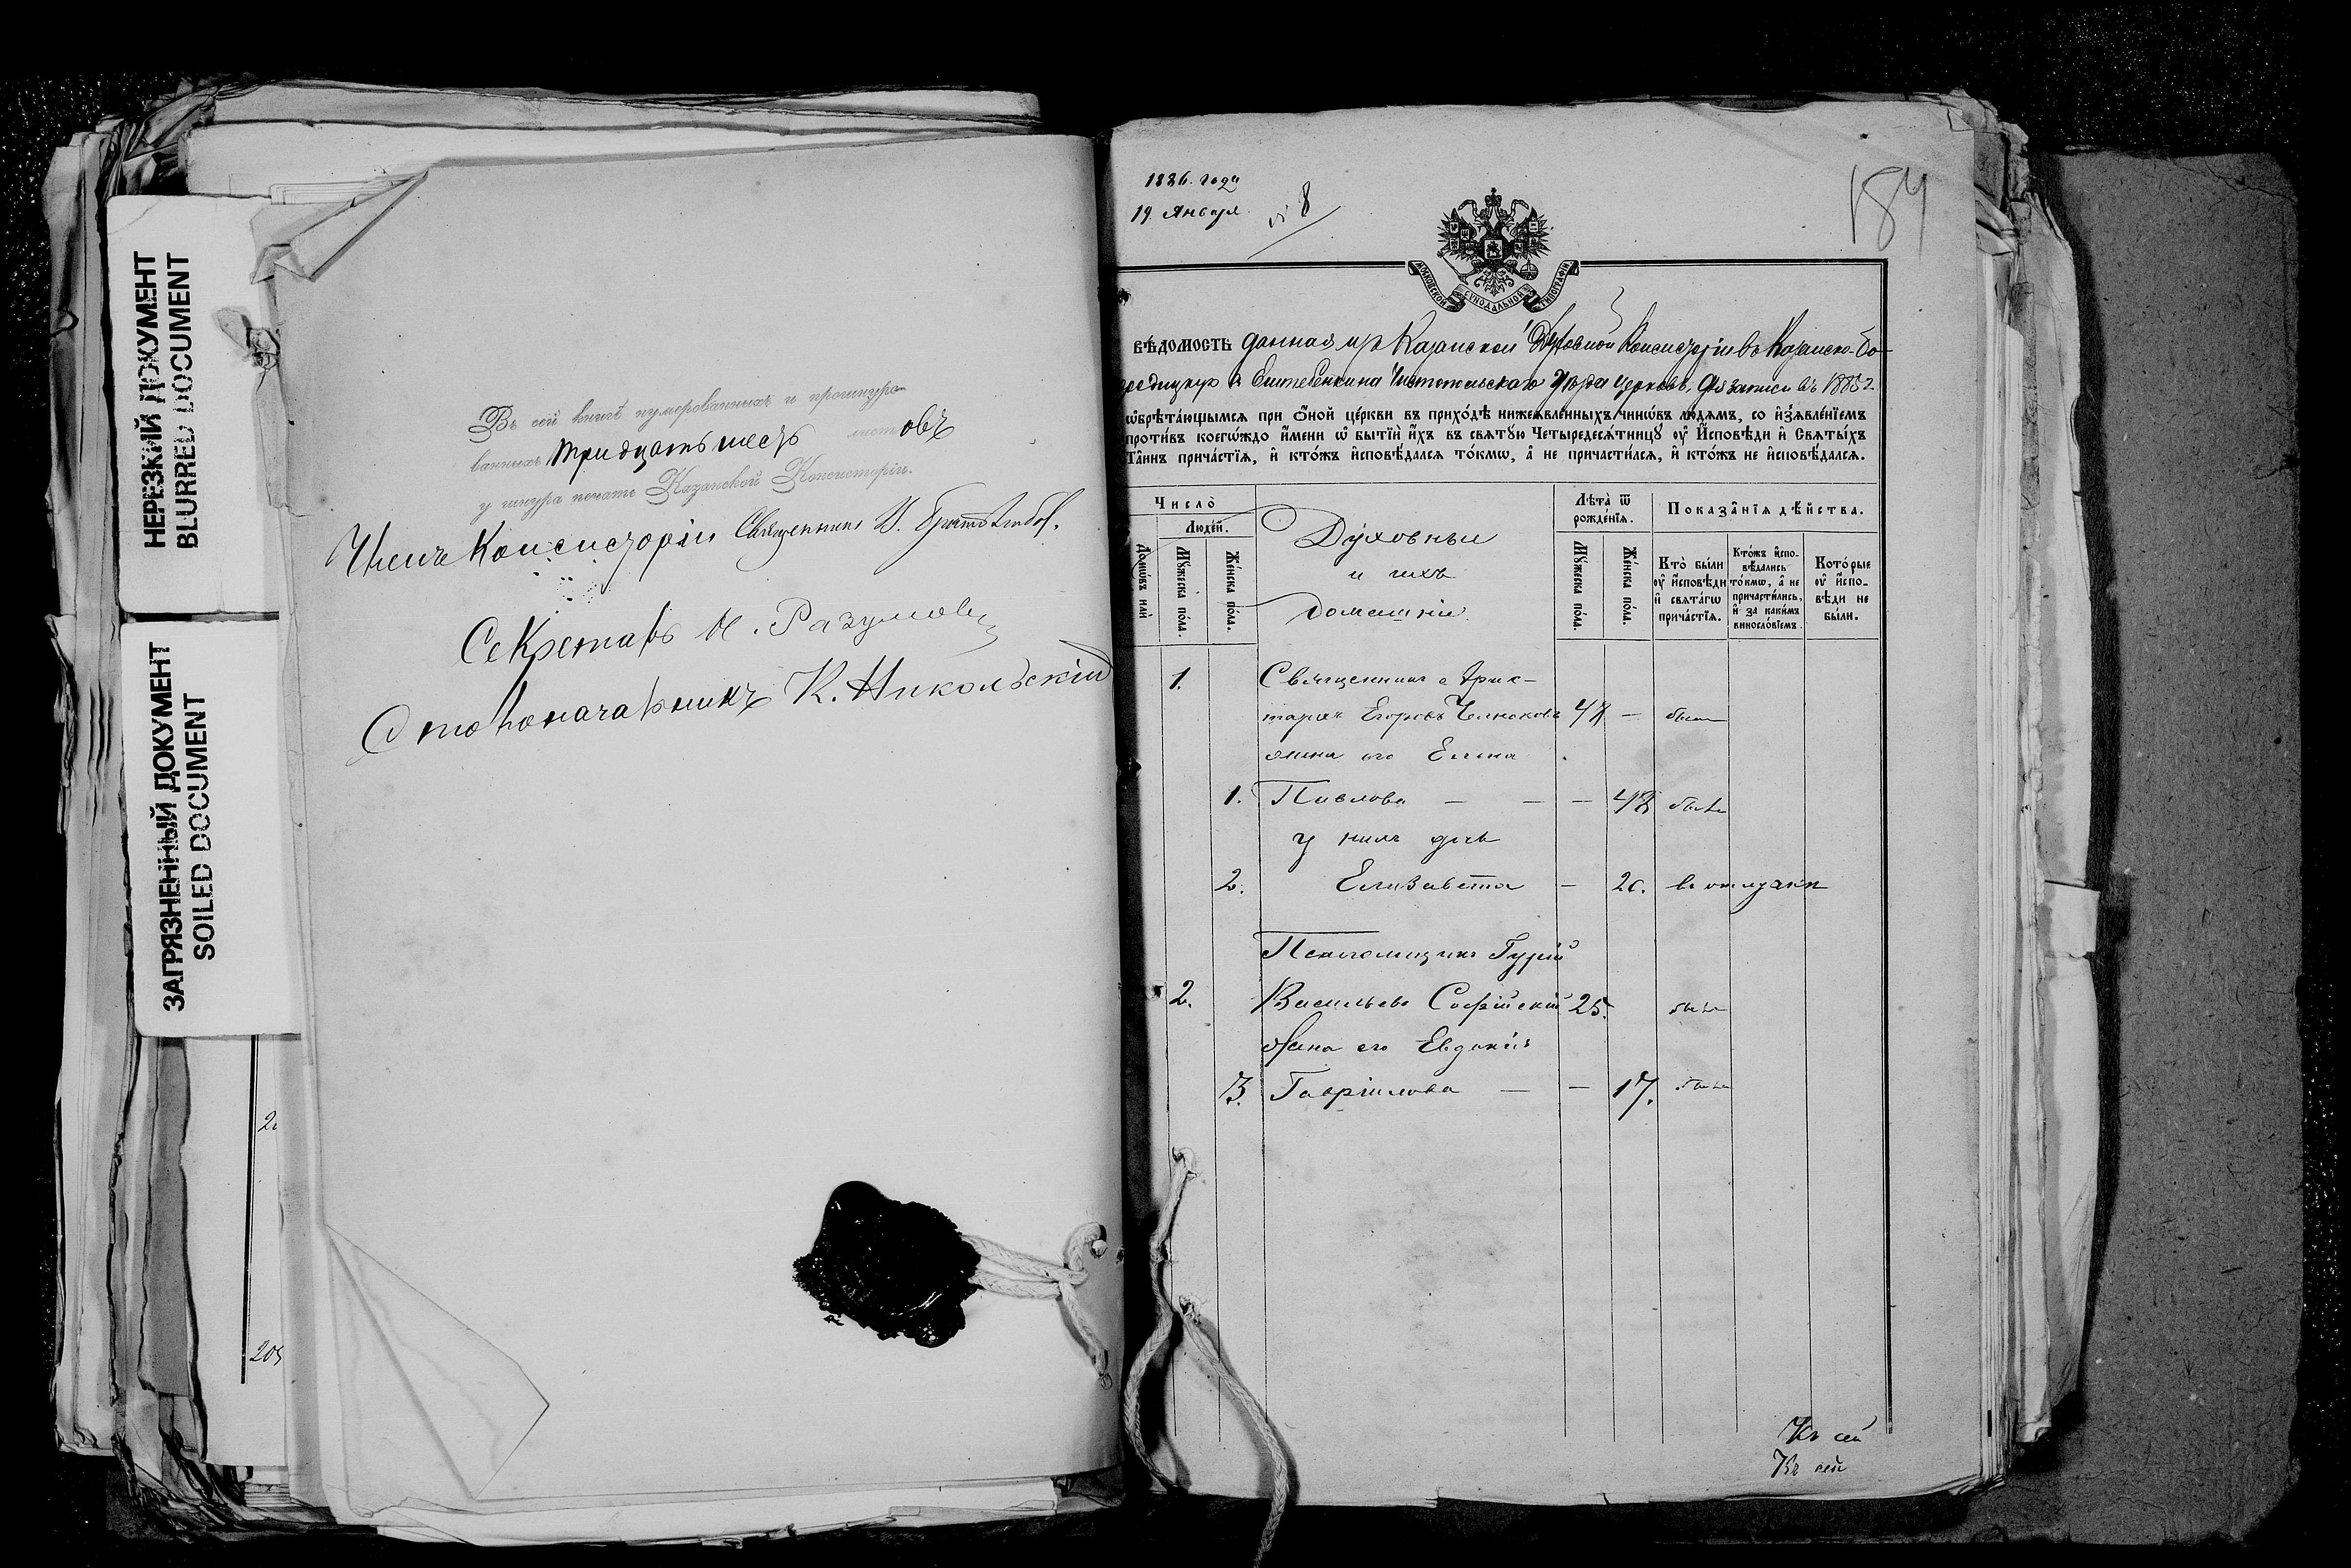 НЕРЕЗКИЙ ДОКУМЕНТ
BLURRED DOCUMENT
ЗАГРЯЗНЕННЫЙ ДОКУМЕНТ
SOILED DOCUMENT
Въ сей книгѣ нумерованныхъ и прошнуро-
ванныхъ тридцать шесть листовъ
у шнура печать Казанской Консисторіи.
Членъ Консисторіи Священникъ
Секретарь Н. Разумовъ
Столоначальникъ К. Никольскій
1886. года
19. Января
№ 8
184
МОСКОВСКОЙ СѴНОДАЛЬНОЙ ТИПОГРАФІИ
ВѢДОМОСТЬ данная изъ Казанской Духовной Консисторіи въ Казанско-Бо-
городицкую Чистопольскаго Уѣзда церковь, для записи въ 1885 г.
ѡбрѣта́ющымся при ѻ҆́ной це́ркви въ прихо́дѣ нижеꙗвле́нныхъ чинѡ́въ лю́демъ, со и҆зꙗвле́нїемъ
проти́въ коегѡ́ждо и҆́мени ѡ҆ бытїѝ и҆́хъ въ свѧтꙋ́ю Четыредесѧ́тницꙋ ᲂу҆ И҆сповѣ́ди и҆ Свѧты́хъ
Та́инъ прича́стїѧ, и҆ кто́жъ и҆сповѣ́далсѧ то́кмѡ, а҆ не причасти́лсѧ, и҆ кто́жъ не и҆сповѣ́далсѧ.
Число̀
Люде́й.
Домѡ́въ и҆лѝ
Мꙋ́жеска по́ла.
Же́нска по́ла.
Духовные
и ихъ
домашніе.
Лѣ́та ѿ рожде́нїѧ.
Мꙋ́жеска по́ла.
Же́нска по́ла.
Показа̑нїѧ дѣ́йства.
Кто̀ бы́ли ᲂу҆ и҆сповѣ́ди и҆ свѧта́гѡ прича́стїѧ.
Кто́жъ и҆спо-вѣ́дались то́кмѡ, а҆ не причасти́лись, и҆ за каки́мъ винослѡ́вїемъ.
Кото́рые ᲂу҆ и҆спо-вѣ́ди не бы́ли.
1. Священникъ Арис-
тархъ Егоровъ Челноковъ 48 — былъ
жена его Елена
1. Павлова — — — 48 была
у нихъ дочь
2. Елизавета — 20. въ отлучкѣ
Псаломщикъ Гурій
2. Васильевъ Софійскій 25. былъ
Жена его Евдокія
3. Гавріилова — — 17. была
Къ сей
Къ сей